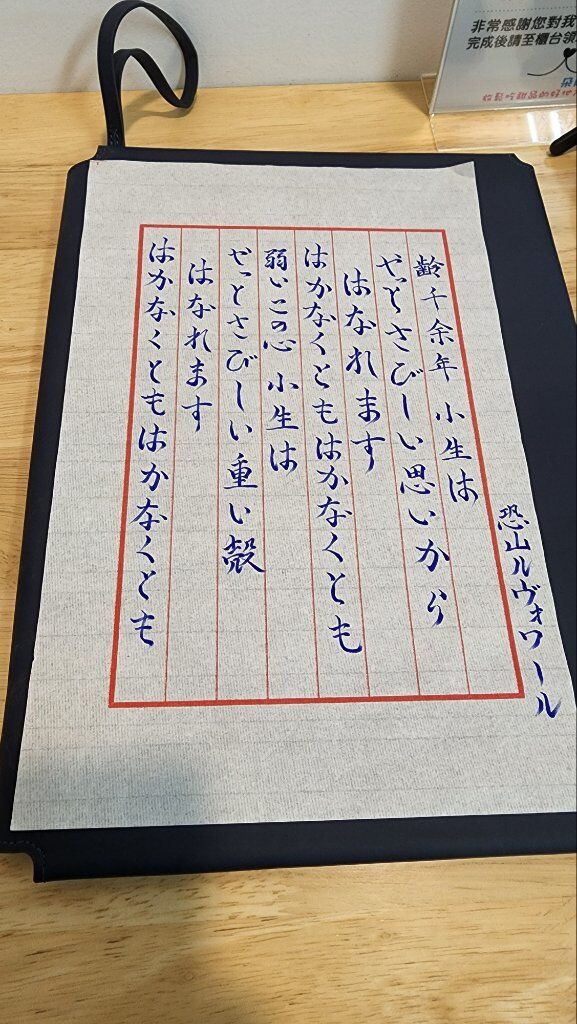 非常感謝您對我
完成後請至櫃台領
吃甜品的好地
恐山ルヴォワール
齢千余年 小生は
やっとさびしい思いから
はなれます
はかなくともはかなくとも
弱いこの心 小生は
やっとさびしい重い殻
はなれます
はかなくともはかなくとも